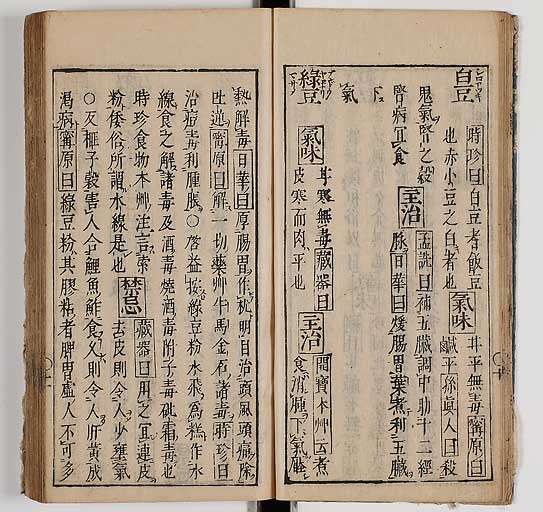 白豆 シロアヅキ
時珍曰白豆者飯豆
也赤小豆之白者也
氣味
甘平無毒甯原曰
鹹平孫眞人曰殺
鬼氣腎之穀
腎病宜食
主治
孟詵曰補五臟調中助十二經
脉日華曰煖腸胃葉煮利五臟下
氣
綠豆
氣味
甘寒無毒藏器曰
皮寒而肉平也
主治
開寶本艸云煮
食消腫下氣壓
熱解毒日華曰厚腸胃作枕明目治頭風頭痛除
吐逆甯原曰解一切藥艸牛馬金石諸毒時珍曰
治痘毒利腫脹○啓益按綠豆粉水飛爲糕作水
線食之解諸毒及酒毒燒酒毒附子毒砒霜毒也
時珍食物本艸注言索
粉倭俗所謂水線是也
禁忌
藏器曰用之宜連皮
去皮則令人少壅氣
○反榧子殼害人合鯉魚鮓食久則令人肝黃成
渴病甯原曰綠豆粉其膠粘者脾胃虛人不可多